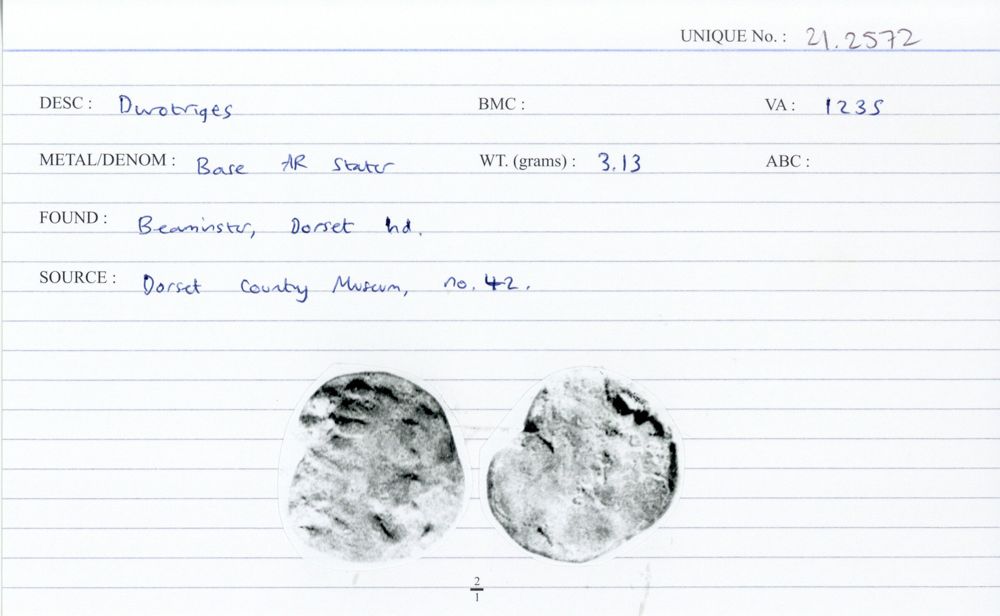 UNIQUE No. : 21.2572
DESC : Durotriges BMC : VA : 1235
METAL/DENOM : Base AR Stater WT. (grams) : 3.13 ABC :
FOUND : Beaminster, Dorset hd.
SOURCE : Dorset County Museum, no. 42.
2
1